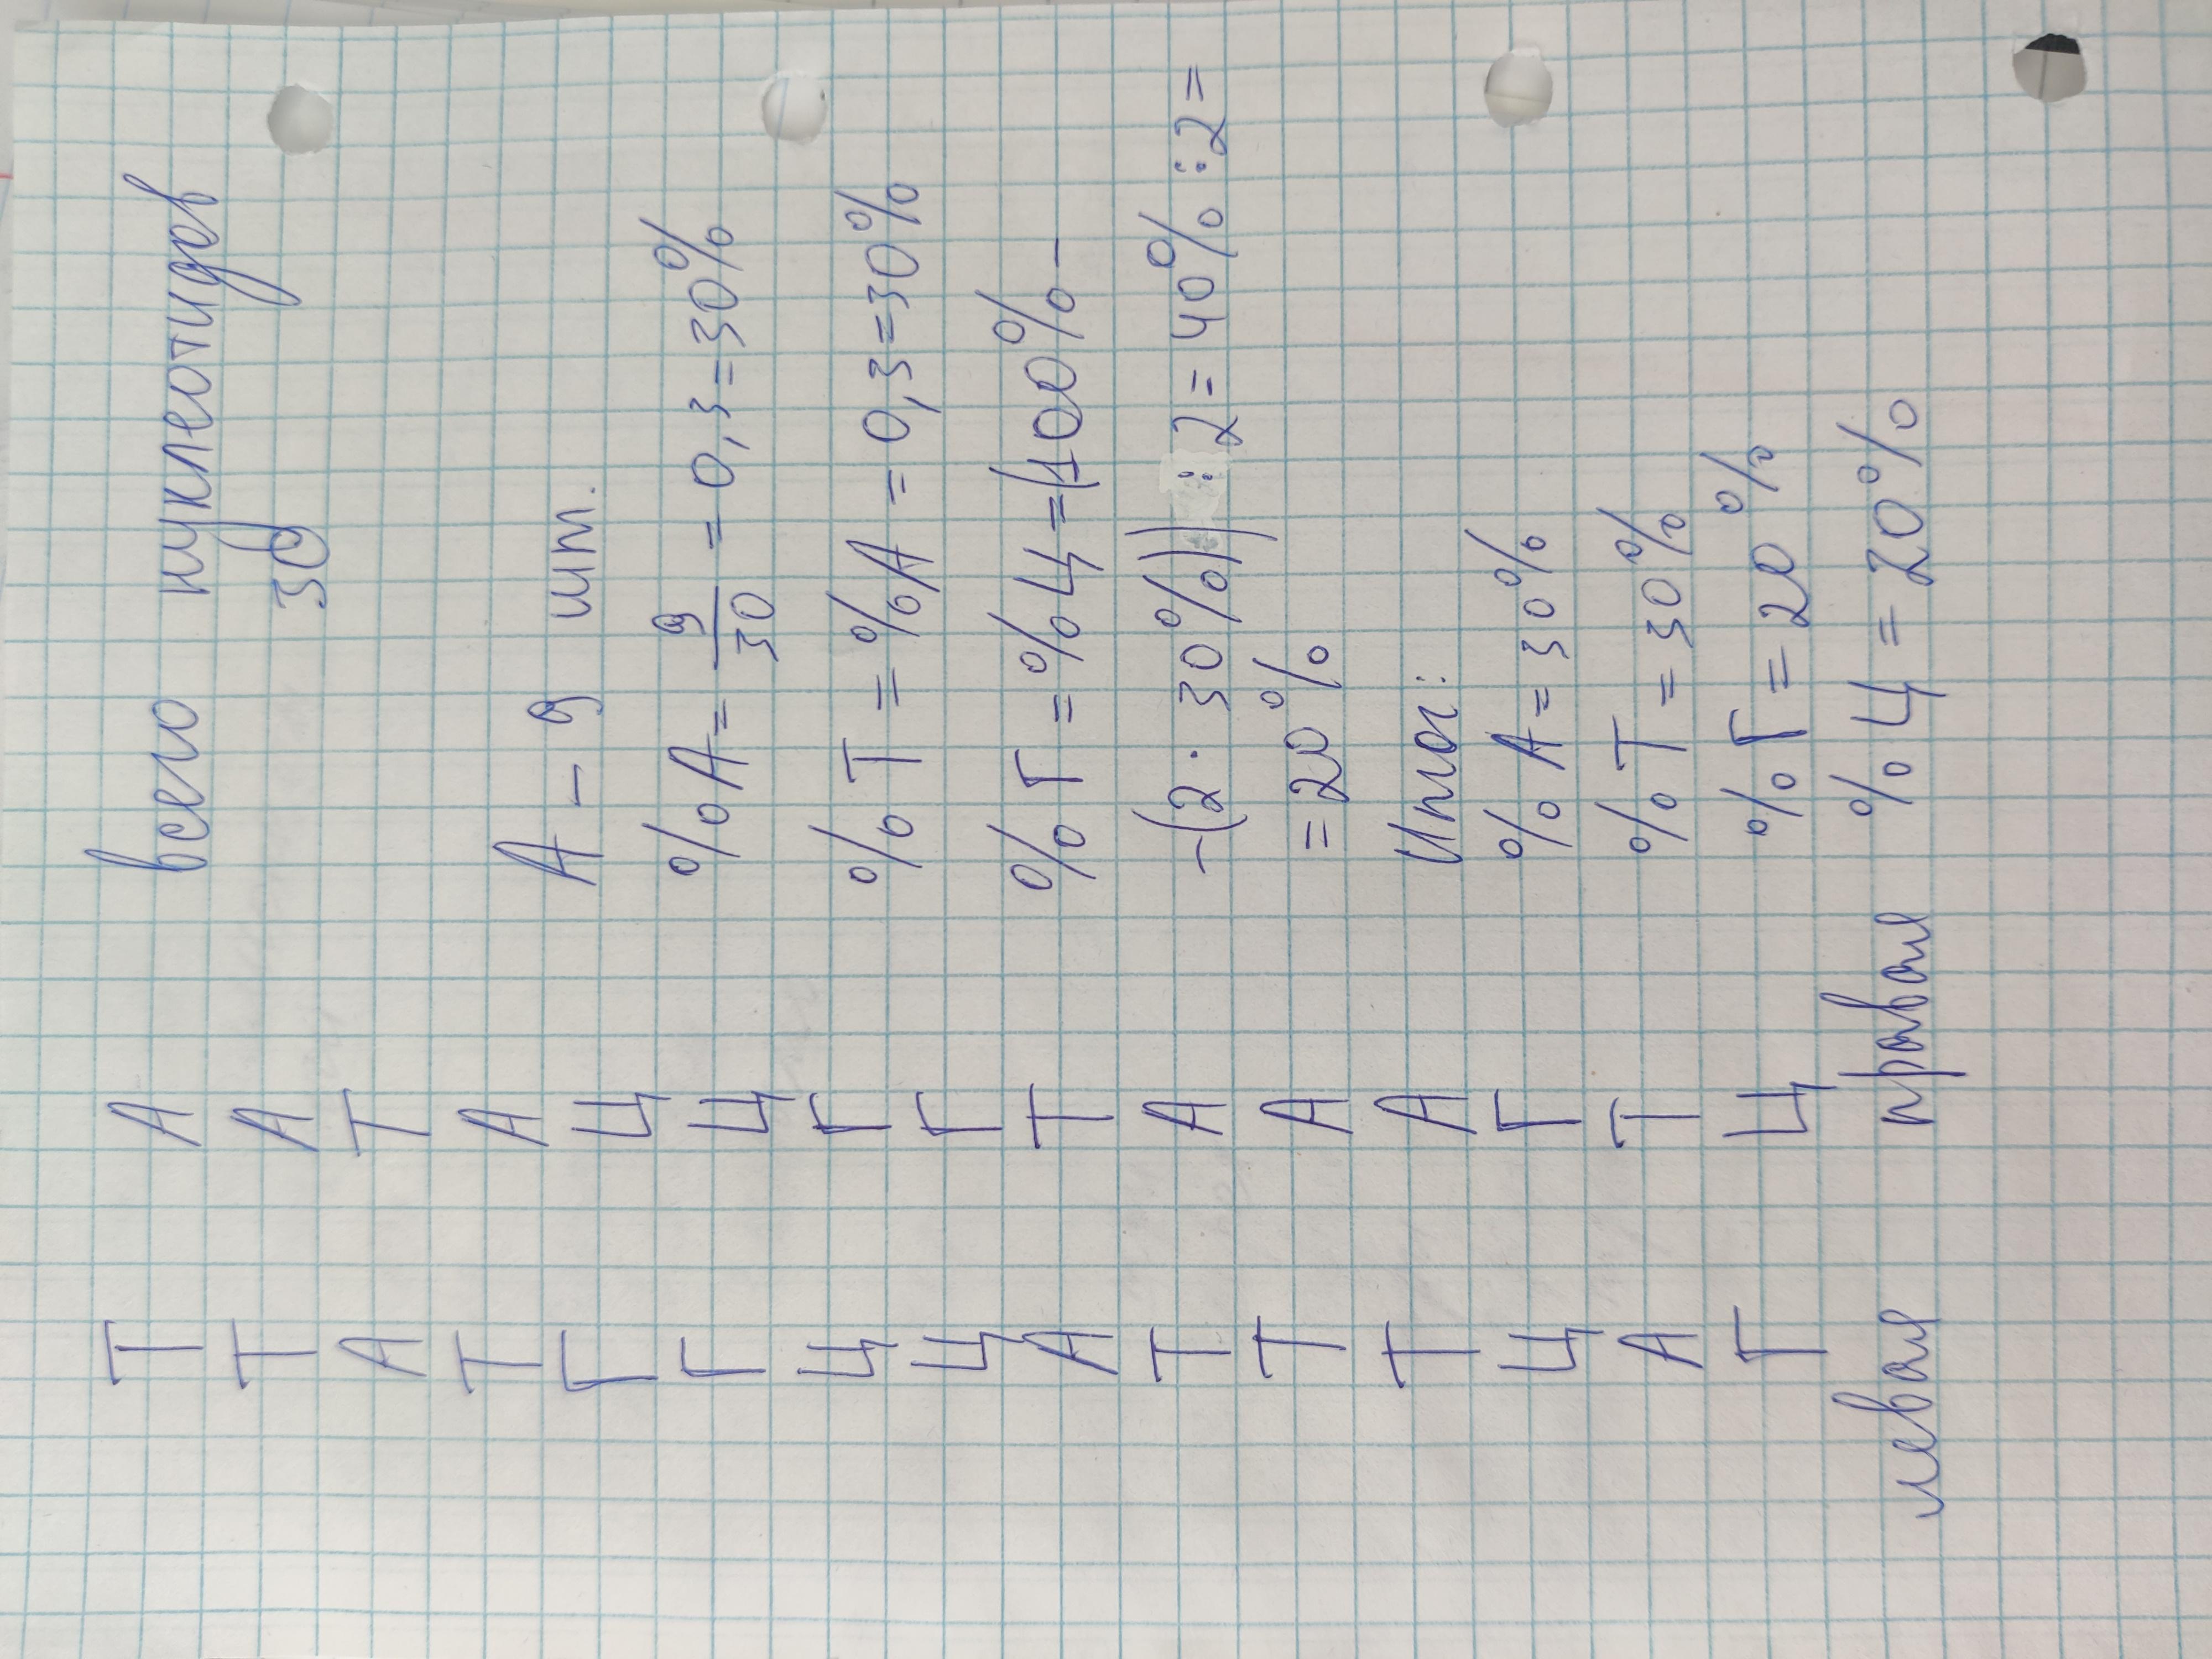 Т А
Т А
А Т
Т А
Г Ц
Г Ц
Ц Г
Ц Г
А Т
Т А
Т А
Т А
Ц Г
А Т
Г Ц
левая правая
всего нуклеотидов
30
А - 9 шт.
%А = 9/30 = 0,3 = 30%
%Т = %А = 0,3 = 30%
%Г = %Ц = (100% -
-(2 · 30%)) : 2 = 40% : 2 =
= 20%
Итог:
% А = 30%
% Т = 30%
% Г = 20%
% Ц = 20%